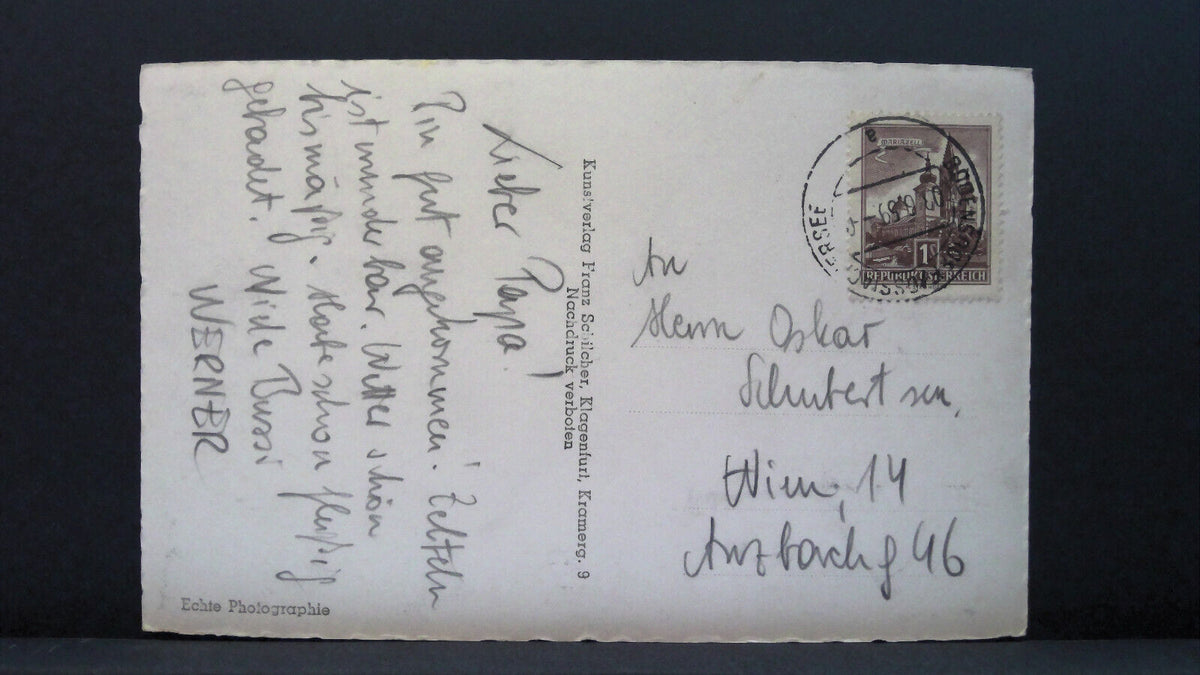 Lieber Papa!
Bin gut angekommen. Zelteln
ist wunderbar. Wetter schön
bismäßig. Habe schon fleißig
gebadet. Viele Bussi
WERNER
Kunstverlag Franz Schilcher, Klagenfurt, Kramerg. 9
Nachdruck verboten
Echte Photographie
MARIAZELL
1S
REPUBLIK ÖSTERREICH
An
Herrn Oskar
Schubert sen.
Wien, 14
Anzbachg 46